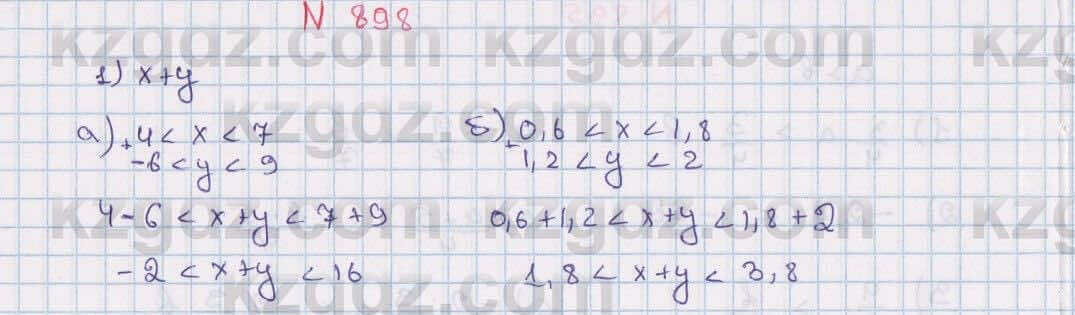 N 898
1) x+y
а) + 4 < x < 7
-6 < y < 9
4-6 < x+y < 7+9
-2 < x+y < 16
б) + 0,6 < x < 1,8
1,2 < y < 2
0,6+1,2 < x+y < 1,8+2
1,8 < x+y < 3,8
kzgdz.com kzgdz.com kzgdz.com
kzgdz.com
kzgdz.com kzgdz.com kzgdz.com
kzgdz.com